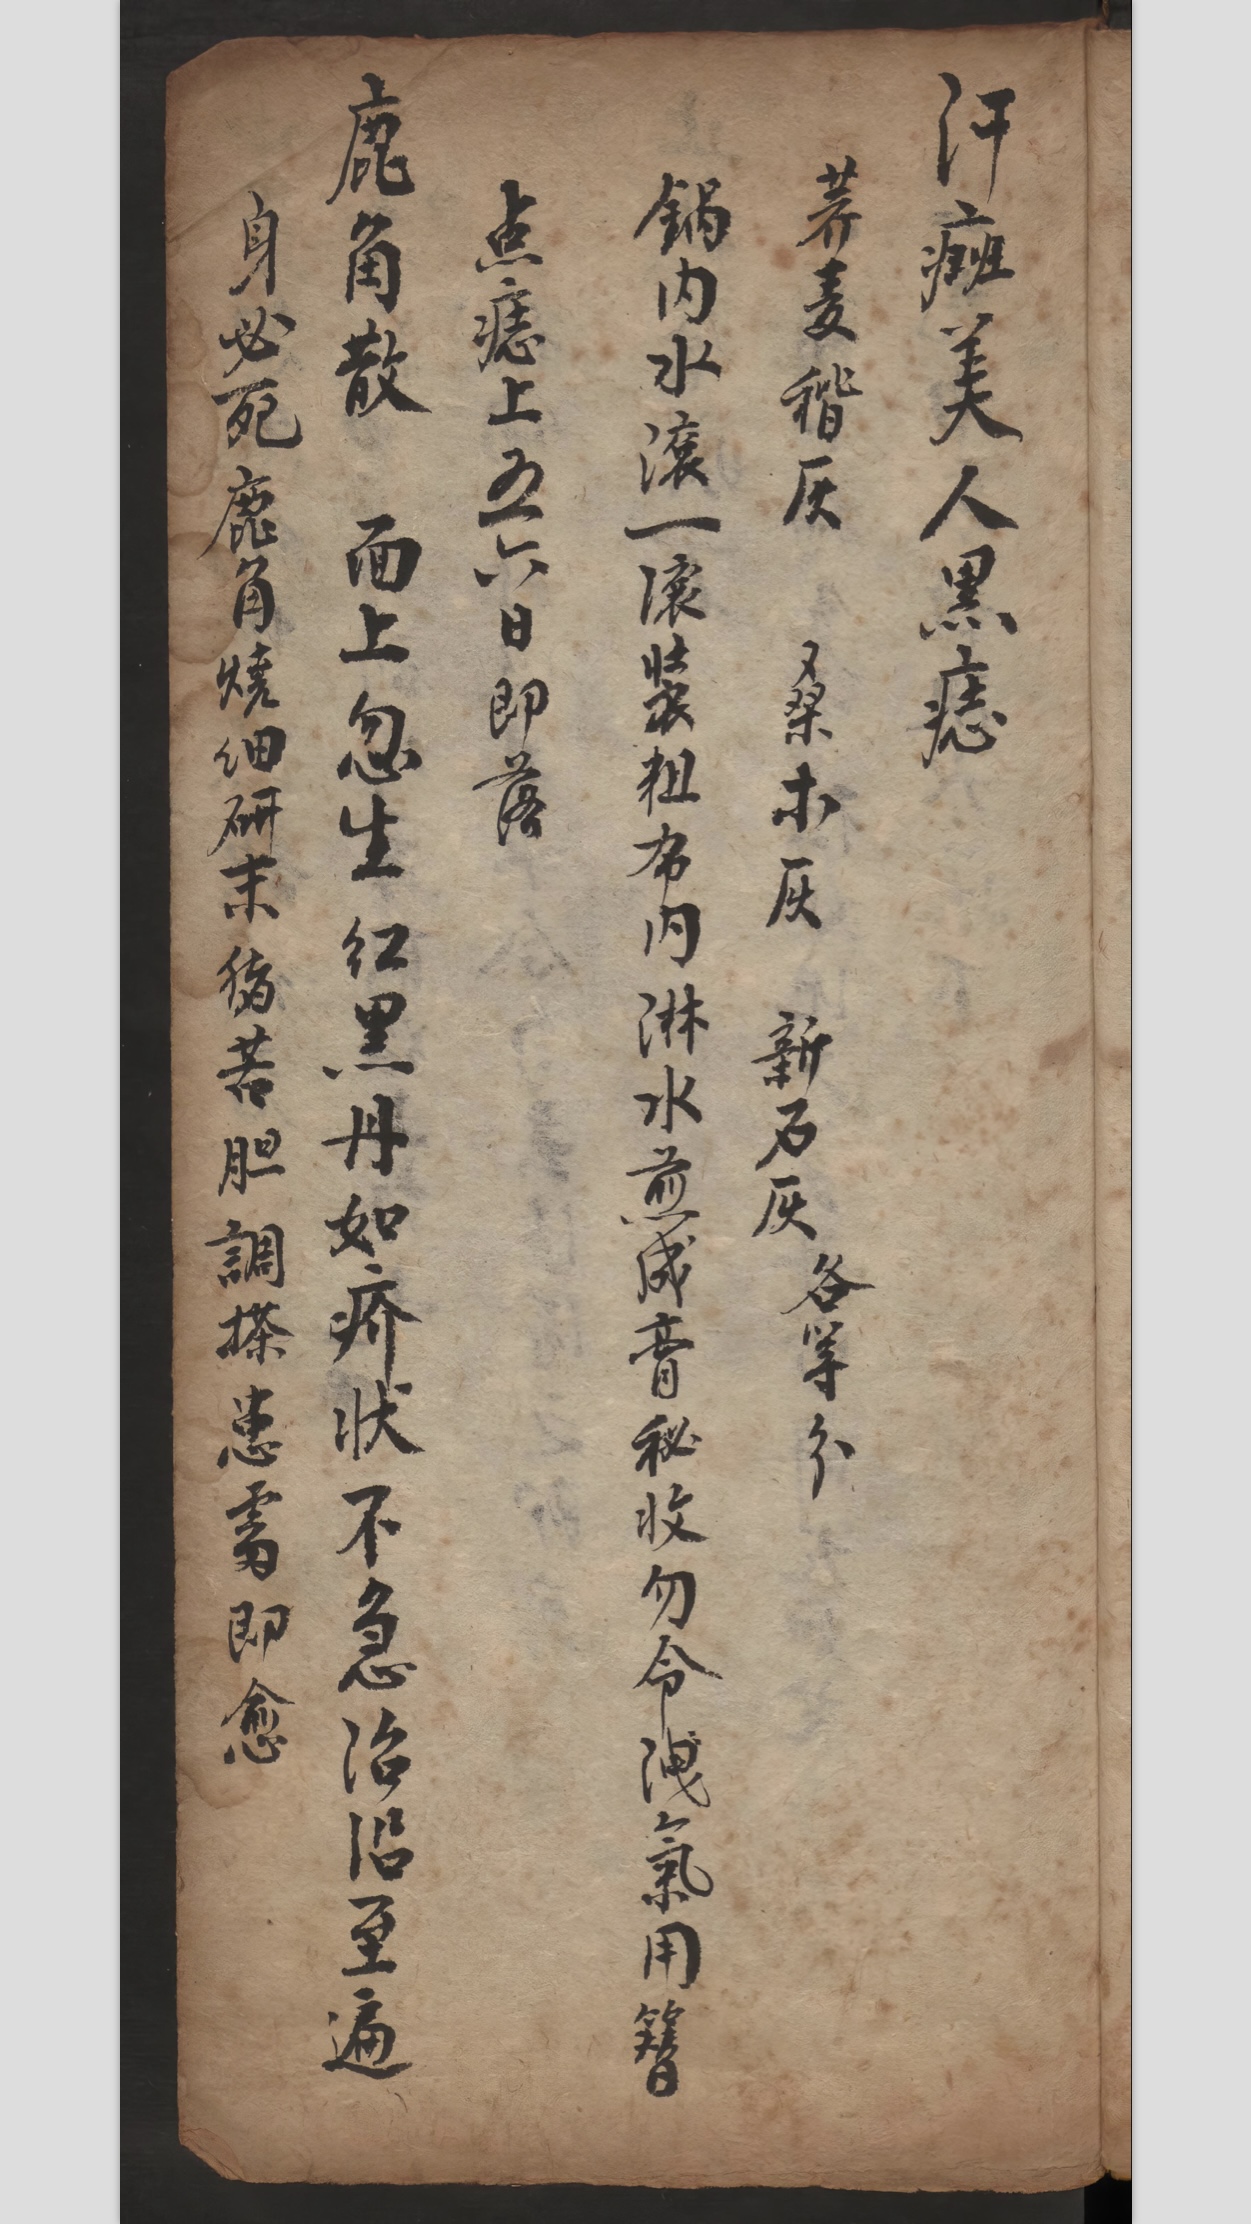 汗癍美人黑痣
荞麦稭灰 桑木灰 新石灰 各等分
鍋内水滚一滚装粗布内淋水煎成膏秘收勿令洩氣用簪
点痣上五六日即落
鹿角散 面上忽生红黑丹如疥状不急治沿至遍
身必死鹿角燒细研末猪苦胆調搽患處即愈